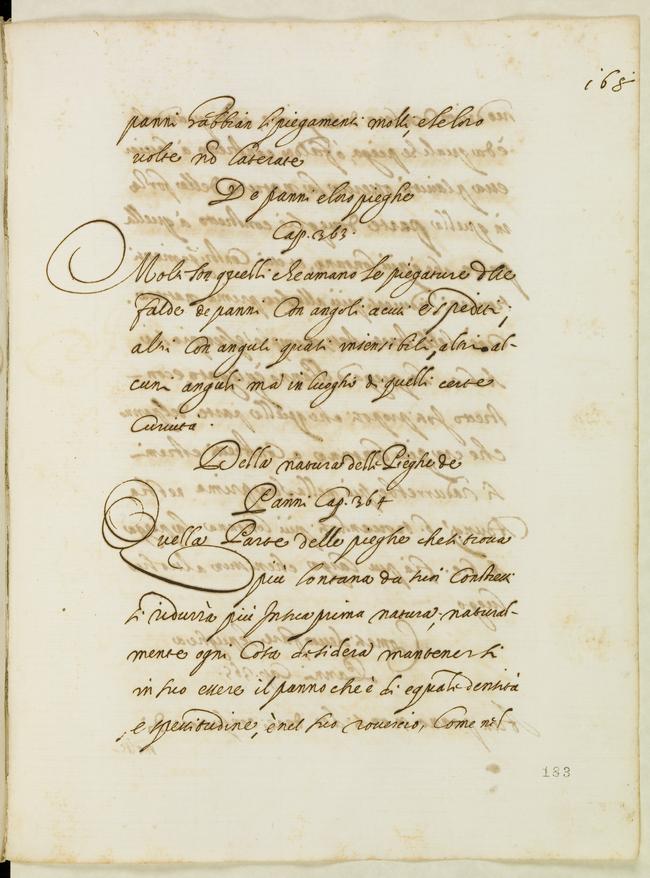 168
panni habbian li piegamenti molti, e le loro
volte nõ laterate
De panni e loro pieghe
Cap. 363.
Molti son quelli che amano le piegature delle
falde de panni con angoli acuti e spediti,
altri con anguli quasi insensibili, altri al-
cuni anguli ma in luoghi di quelli certe
curvita.
Della natura delli Pieghe de
Panni Cap. 364
Quella Parte delle pieghe che si trova
più lontana da suoi constretti
si ridurrà più in sua prima natura, natural-
mente ogni cosa desidera mantenersi
in suo essere il panno che è di equali densità
e spessitudine, è nel suo rovescio, Come nel
183